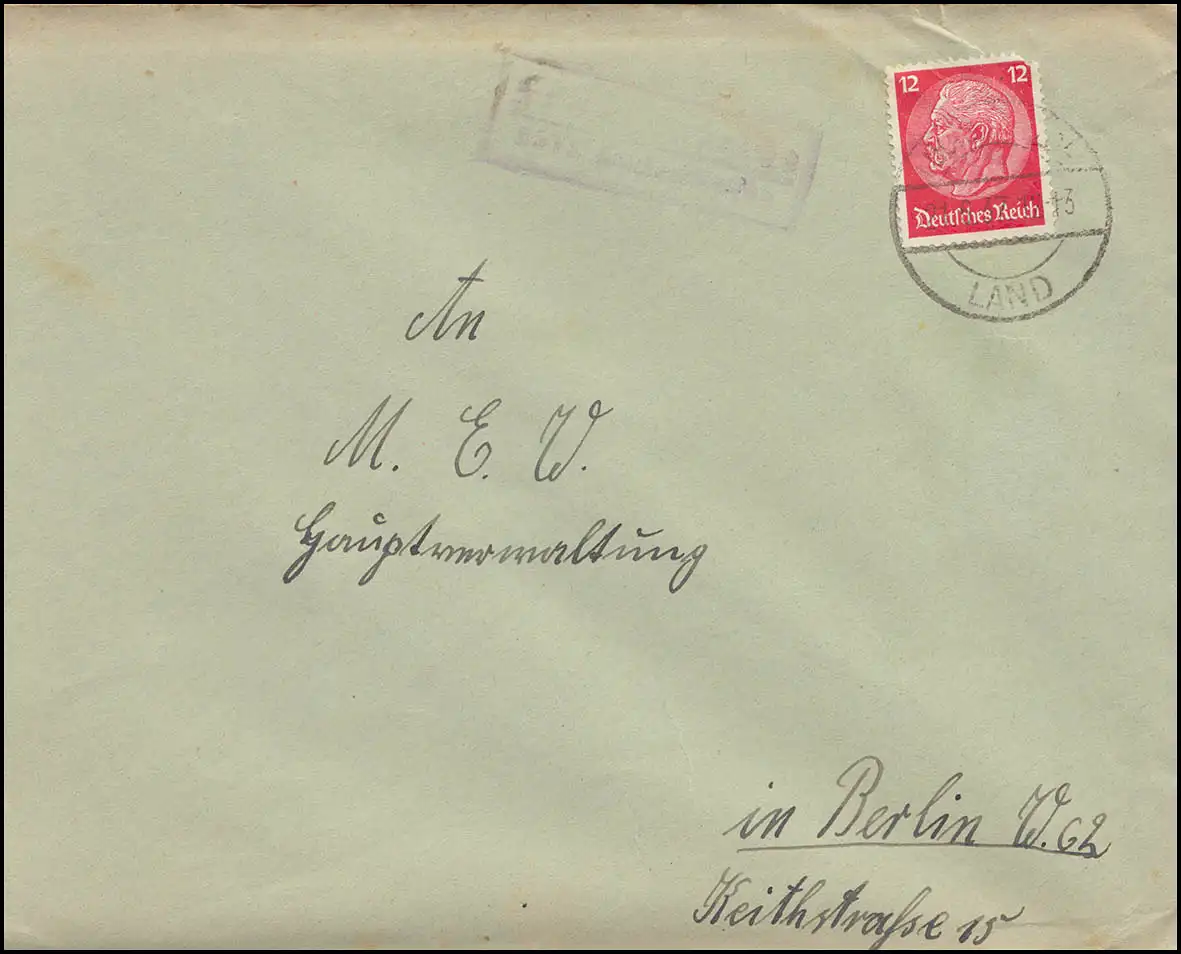 12 12
Deutsches Reich
LAND
An
M. E. W.
Hauptverwaltung
in Berlin W. 62
Keithstraße 15